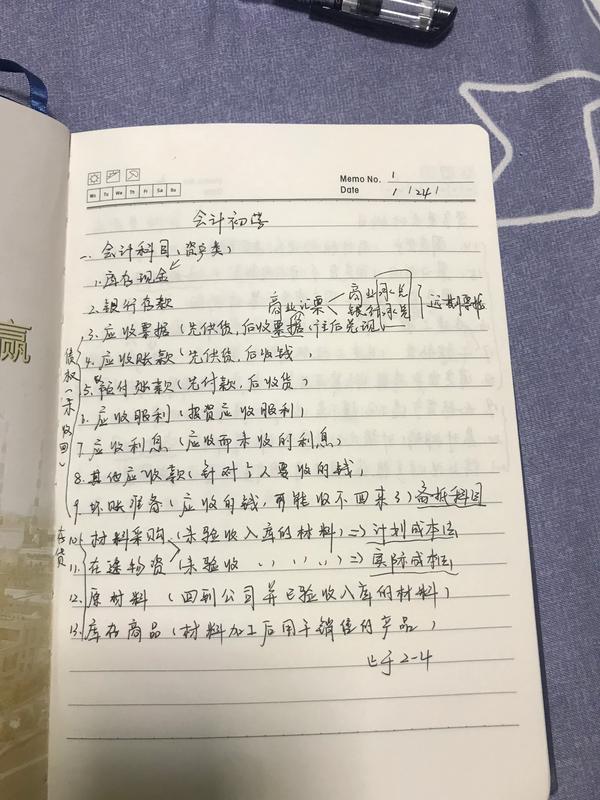 赢
Memo No. 1
Mo Tu We Th Fr Sa Su
Date 1 / 24 /
会计初学
一、会计科目（资产类）
1.库存现金
2.银行存款
商业汇票 商业承兑 银行承兑 远期票据
3.应收票据（先供货，后收票据，往后兑现）
4.应收账款（先供货，后收钱）
5.预付账款（先付款，后收货）
6.应收股利（投资应收股利）
7.应收利息（应收而未收的利息）
8.其他应收款（针对个人要收的钱）
9.坏账准备（应收的钱，可能收不回来了）备抵科目
债权（未收回）
存货
10.材料采购（未验收入库的材料）=）计划成本法
11.在途物资（未验收、、、、、）=）实际成本法
12.原材料（回到公司并已验收入库的材料）
13.库存商品（材料加工后用于销售的产品）
止于2-4